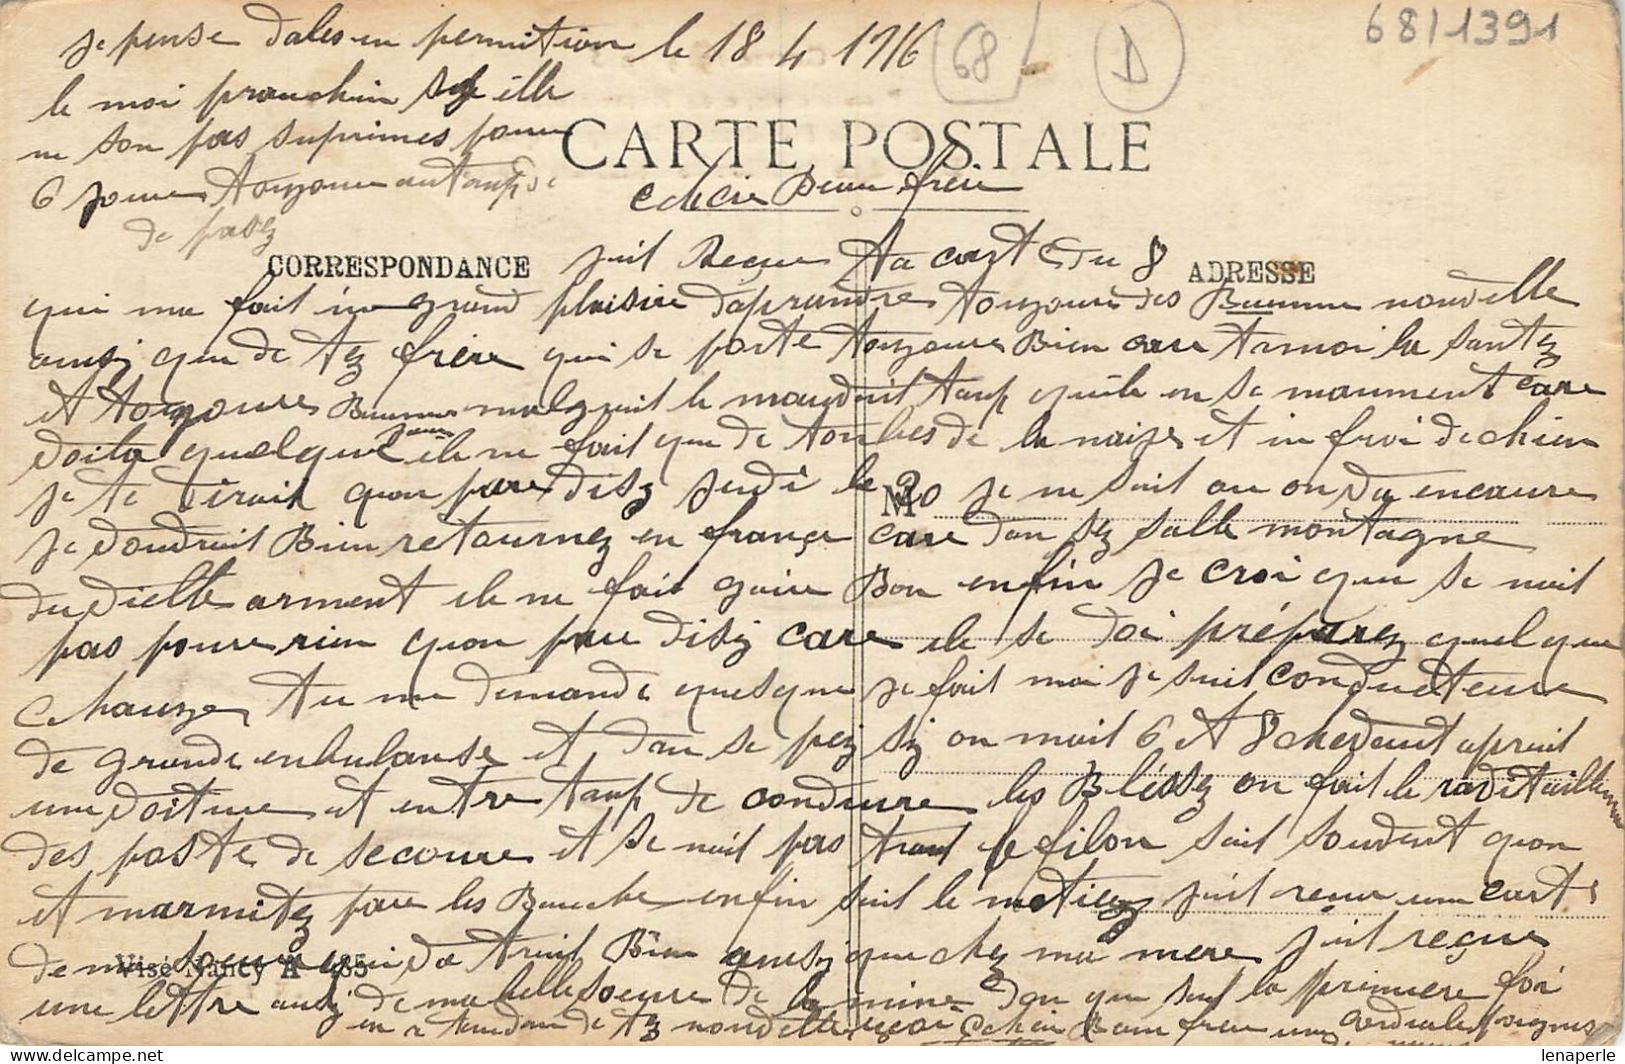 68/1391
68
D
je pense dales en permition le 18 4 1916
le moi prouchin si elle
ne son pas suprimes pour
6 jour toujour autemps de
de pasez
CARTE POSTALE
Cher Beau frere
CORRESPONDANCE
ADRESSE
jait Recue ta carte du 8
qui ma fait in grand plaisire daprandre toujours des Bonnne nouvelle
ausi que de tez frere qui se porte toujours Bien care tamoi la santez
et toujours Bonne malgrait le maudit temp quile en se moument care
voila quelque jour ile ne fait que de tonbes de la naize et in froi de chien
je te dirait quon pare disz jeudi le 20 je ne sait ou on va encaure
M
je voudrait Bien retournez en france care dan sez salle montagne
du vielle arment ile ne fait gaire Bon enfin je croi que se nait
pas poure rien quon pare disz care ile se doi préparez quelque
chauze tu me demande quesque je fait moi je suit conducteure
de grande enbulanse et dan se pezi sy on mait 6 et 8 chevaut aprait
une voiture et entre tamp de condure les Bléssez on fait le ravitaillemen
des poste de secoure et se nait pas tout le filon sait souvent quon
et marmitez par les Bauche enfin sait le metiez jait recu une carte
de ma soeure qui va trait Bien ausi que chez ma mere jait recue
Visé Nancy A 485
une lettre ausi de ma belle soeure de la mine don que set la premiere foi
en atendan de tez nouvelle recoi cher Beau frere une cordiale poignes
lenaperle